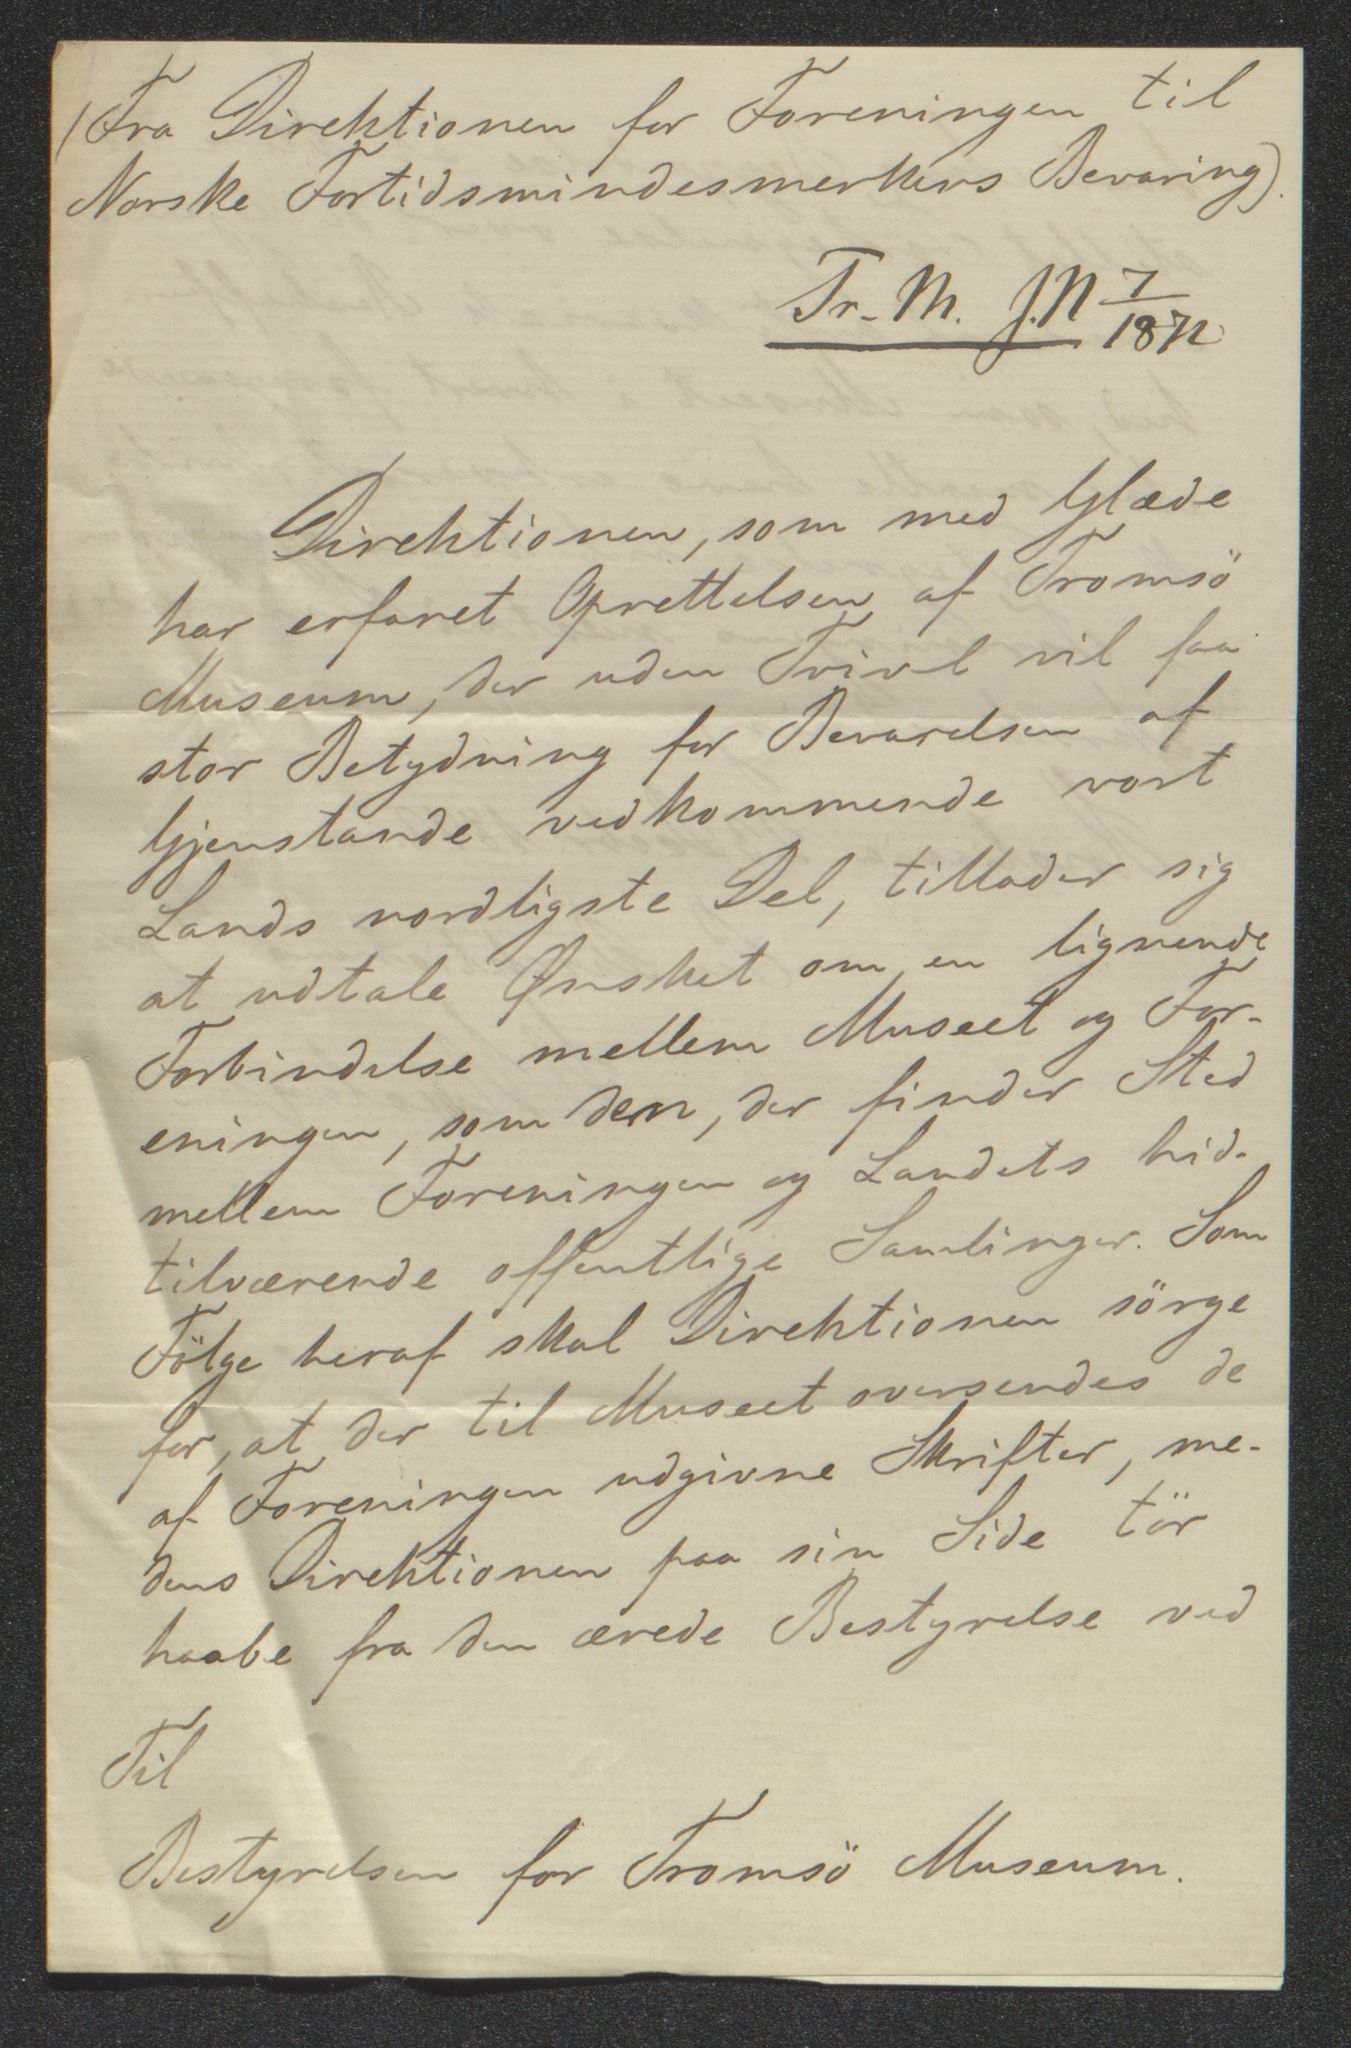 (Fra Direktionen for Foreningen til
Norske Fortidsmindesmerkers Bevaring).
Tr. M. J.N 7/1872
Direktionen, som med Glæde
har erfaret Oprettelsen af Tromsö
Museum, der uden Tvivl vil faa
stor Betydning for Bevarelsen af
Gjenstande vedkommende vort
Lands nordligste Del, tillader sig
at udtale Ønsket om en lignende
Forbindelse mellem Museet og For-
eningen, som den, der finder Sted
mellem Foreningen og Landets hid-
tilværende offentlige Samlinger. Som
Fölge heraf skal Direktionen sörge
for, at der til Museet oversendes de
af Foreningen udgivne Skrifter, me-
dens Direktionen paa sin Side tör
haabe fra den ærede Bestyrelse ved
Til
Bestyrelsen for Tromsö Museum.